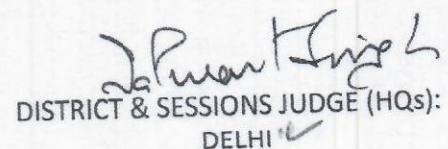 DISTRICT & SESSIONS JUDGE (HQs):
DELHI